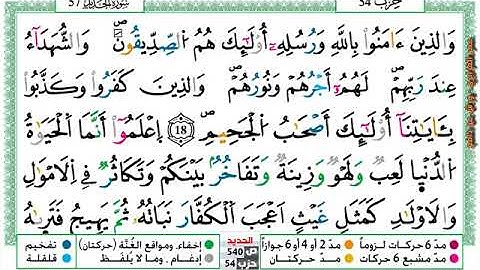 حزب 54 سُورَةُ الحَدِيدِ 57
وَالذِينَ ءَامَنُوا۟ بِاللَّهِ وَرُسُلِهِۦٓ أُو۟لَٰٓئِكَ هُمُ الصِّدِّيقُونَۖ وَالشُّهَدَآءُ
عِندَ رَبِّهِمْۖ لَهُمُۥٓ أَجْرُهُمْ وَنُورُهُمْۖ وَالذِينَ كَفَرُوا۟ وَكَذَّبُوا۟
بِـَٔايَٰتِنَآ أُو۟لَٰٓئِكَ أَصْحَٰبُ الْجَحِيمِۖ 18 اِ۪عْلَمُوٓا۟ أَنَّمَا الْحَيَوٰةُ
الدُّنْيَا لَعِبٌ وَلَهْوٌ وَزِينَةٌ وَتَفَاخُرٌۢ بَيْنَكُمْ وَتَكَاثُرٌ فِي الَامْوَٰلِ
وَالَاوْلَٰدِ كَمَثَلِ غَيْثٍ اَعْجَبَ الْكُفَّارَ نَبَاتُهُۥ ثُمَّ يَهِيجُ فَتَر۪ىٰهُ
مدّ 6 حركات لزوماً مدّ 2 أو 4 أو 6 جوازاً الحديد ص 540 حزب 54 إخفاء، ومواقع الغُنَّة (حركتان) تفخيم
مدّ مشبع 6 حركات مدّ حركتان إدغام، وما لا يُلفَظ قلقلة